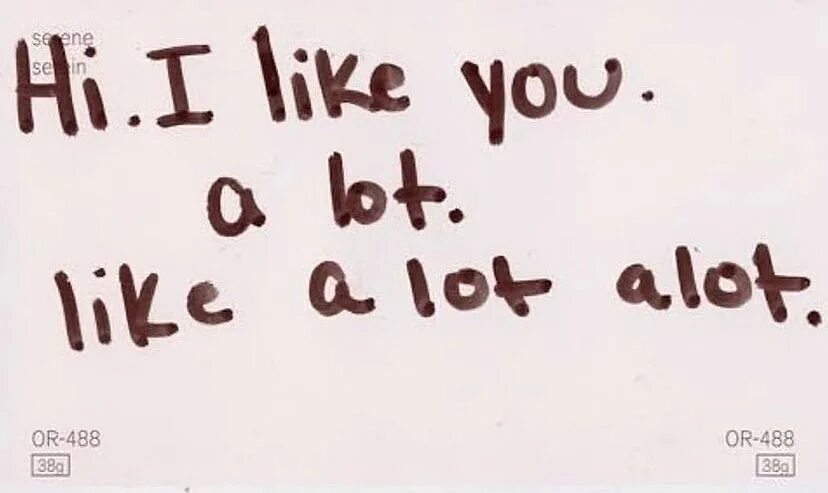 serene
serein
Hi. I like you.
a lot.
like a lot alot.
OR-488 OR-488
38g 38g